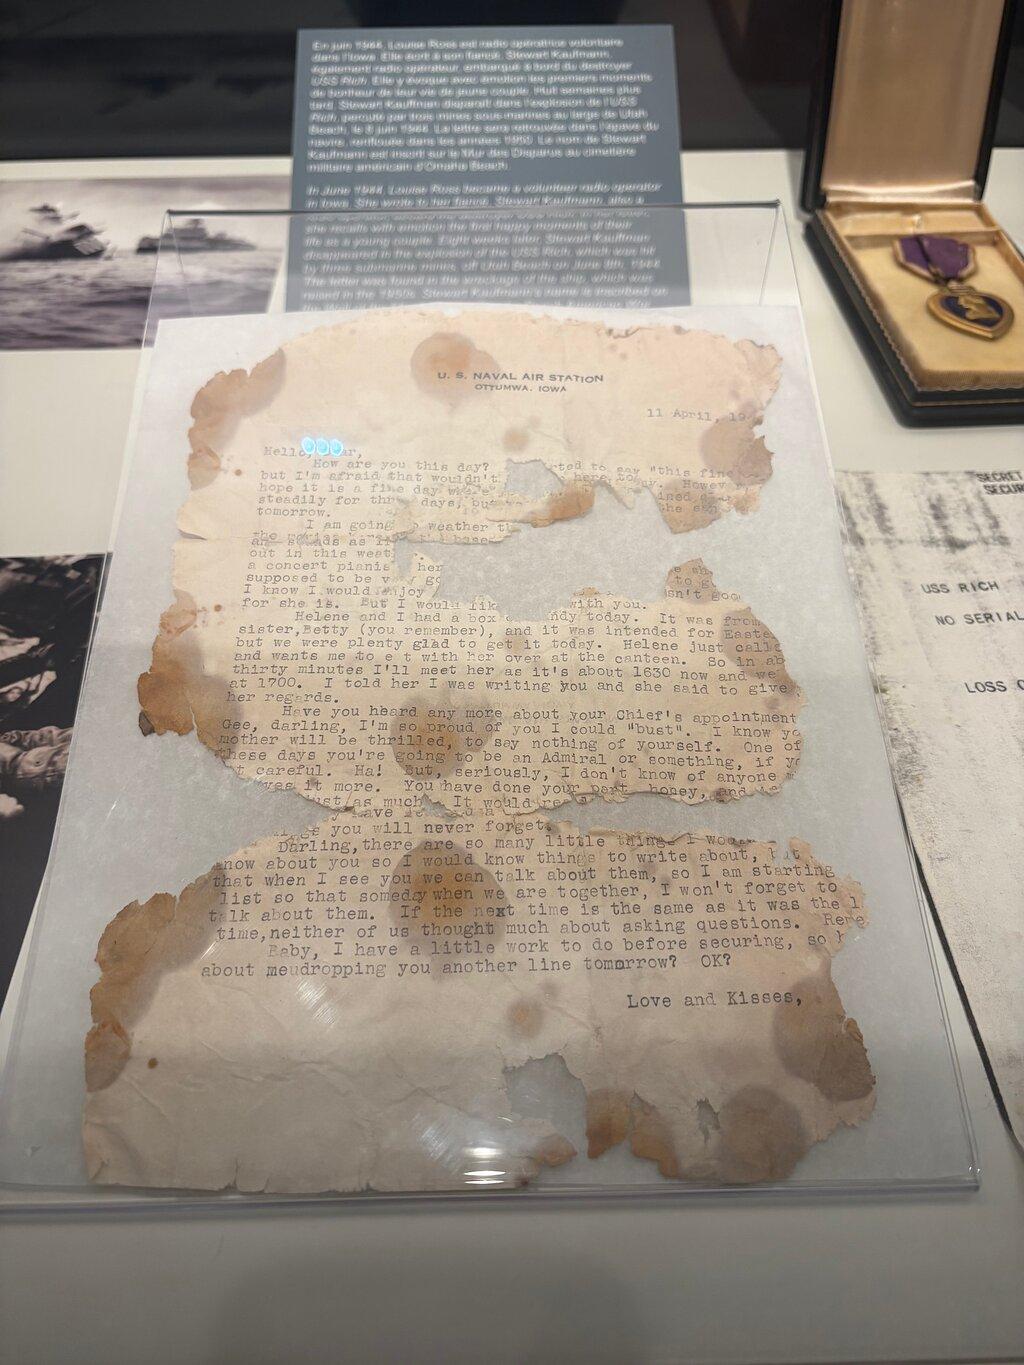 En juin 1944, Louise Ross est radio opératrice volontaire
dans l'Iowa. Elle écrit à son fiancé, Stewart Kaufmann,
également radio opérateur, embarqué à bord du destroyer
USS Rich. Elle y évoque avec émotion les premiers moments
de bonheur de leur vie de jeune couple. Huit semaines plus
tard, Stewart Kauffman disparaît dans l'explosion de l'USS
Rich, percuté par trois mines sous-marines au large de Utah
Beach, le 8 juin 1944. La lettre sera retrouvée dans l'épave du
navire, renflouée dans les années 1950. Le nom de Stewart
Kaufmann est inscrit sur le Mur des Disparus au cimetière
militaire américain d'Omaha Beach.
In June 1944, Louise Ross became a volunteer radio operator
in Iowa. She wrote to her fiancé, Stewart Kaufmann, also a
she recalls with emotion the first happy moments of their
life as a young couple. Eight weeks later, Stewart Kauffman
disappeared in the explosion of the USS Rich, which was hit
by three submarine mines, off Utah Beach on June 8th, 1944.
The letter was found in the wreckage of the ship, which was
raised in the 1950s. Stewart Kaufmann's name is inscribed on
U. S. NAVAL AIR STATION
OTTUMWA, IOWA
11 April, 19
Hello, ar,
How are you this day? rted to say "this fine
but I'm afraid that wouldn't here today. Howev
hope it is a fine day ined
steadily for thr days, bu the sun
tomorrow.
I am going weather t
out in this weat
a concert pianis her e sh
supposed to be v y go to g
I know I would njoy sn't goo
for she is. But I would lik with you.
Helene and I had a box ndy today. It was from
sister, Betty (you remember), and it was intended for Easte
but we were plenty glad to get it today. Helene just calle
and wants me to e t with her over at the canteen. So in ab
thirty minutes I'll meet her as it's about 1630 now and we
at 1700. I told her I was writing you and she said to give
her regards.
Have you heard any more about your Chief's appointment
Gee, darling, I'm so proud of you I could "bust". I know yo
mother will be thrilled, to say nothing of yourself. One of
these days you're going to be an Admiral or something, if yo
t careful. Ha! But, seriously, I don't know of anyone w
ves it more. You have done your part, honey, and
just as much. It would
you will never forget.
Darling, there are so many little things I wou
now about you so I would know things to write about, but
that when I see you we can talk about them, so I am starting
list so that someday when we are together, I won't forget to
talk about them. If the next time is the same as it was the l
time, neither of us thought much about asking questions. Reme
Baby, I have a little work to do before securing, so h
about meudropping you another line tomorrow? OK?
Love and Kisses,
SECRET
SECUR
USS RICH
NO SERIAL
LOSS O